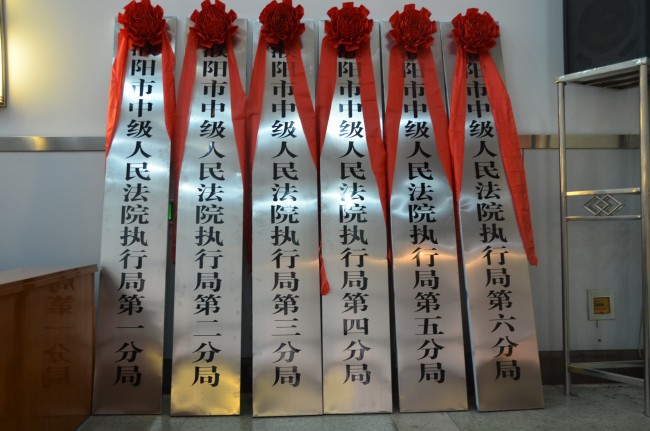 濮阳市中级人民法院执行局第一分局
濮阳市中级人民法院执行局第二分局
濮阳市中级人民法院执行局第三分局
濮阳市中级人民法院执行局第四分局
濮阳市中级人民法院执行局第五分局
濮阳市中级人民法院执行局第六分局